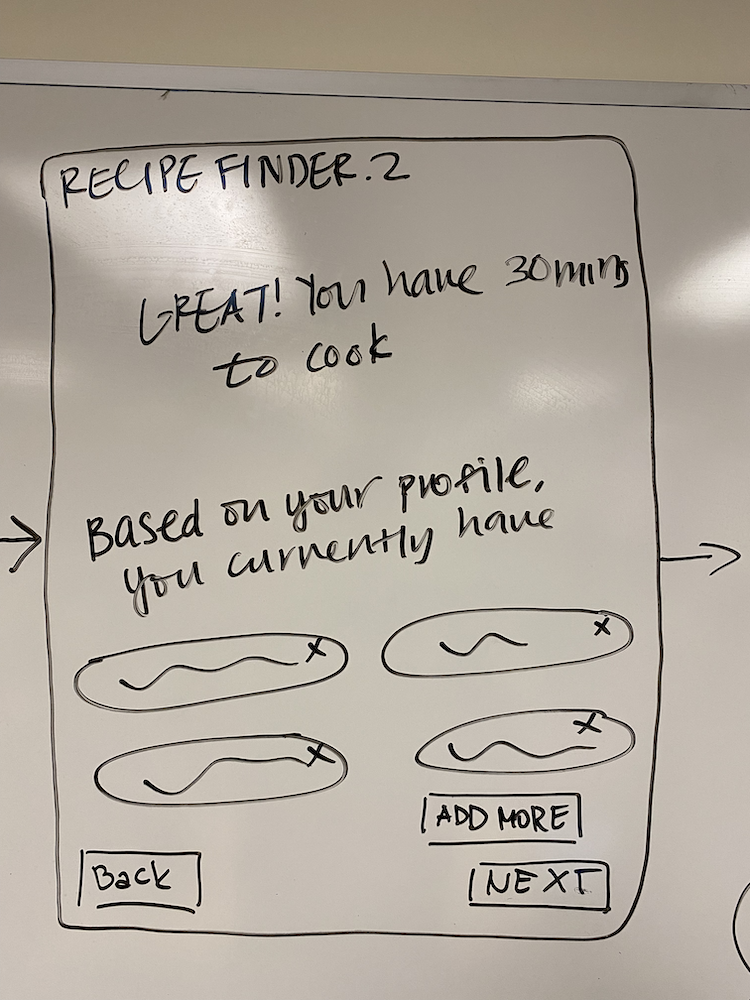 RECIPE FINDER.2
GREAT! You have 30mins
to cook
Based on your profile,
you currently have
x
x
x
x
ADD MORE
Back
NEXT